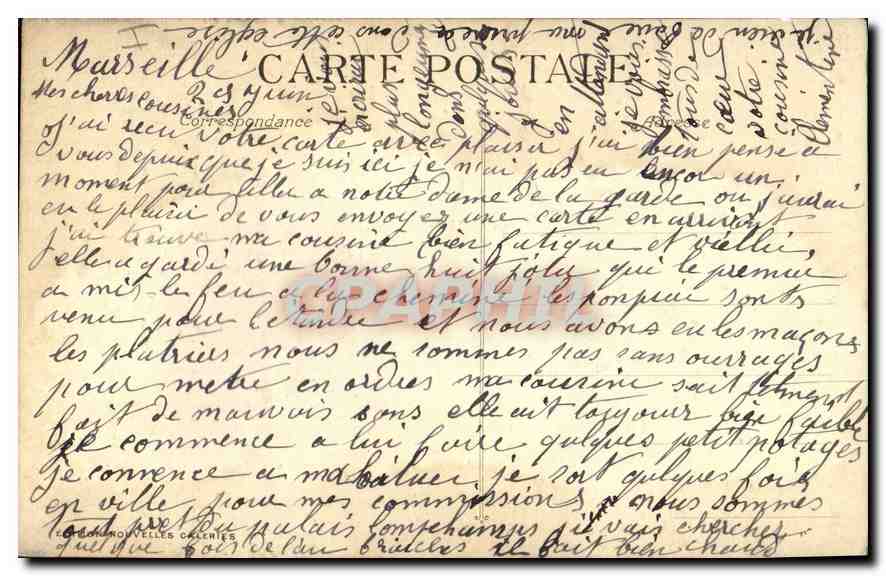 Marseille
CARTE POSTALE
25 juin
Mes cheres cousines
Correspondance
Adresse
j'ai recu votre carte avec plaisir j'ai bien pensé a
vous depuis que je suis ici je n'ai pas eu encor un
moment pour aller a notre dame de la garde ou j'aurai
eu le plaisir de vous envoyez une carte en arrivant
j'ai trouvé ma cousine bien fatigue et viellie,
elle a gardé une bonne huit jour qui le premier
a mis le feu a la cheminé les ponpier sont
venu pour l'etindre et nous avons eu les maçons
les platriers nous ne sommes pas sans ouvrages
pour metre en ordres ma cousine sait
fait de mauvois sons elle ait toujour bien faible
je commence a lui faire quelques petit potages
je commence a m'habituer je sort quelques fois
en ville pour mes commissions nous sommes
tout pret du palais Longchamps je vais chercher
EDITION NOUVELLES GALERIES
quelque fois de l'eau fraiches il fait bien chaud
je vous
plus
longuement
dans
quelques
jours
en
attendant
je vous
embrasse
tous de
cœur
votre
cousine
Clementine
dans cette eglise
CPAPHIL